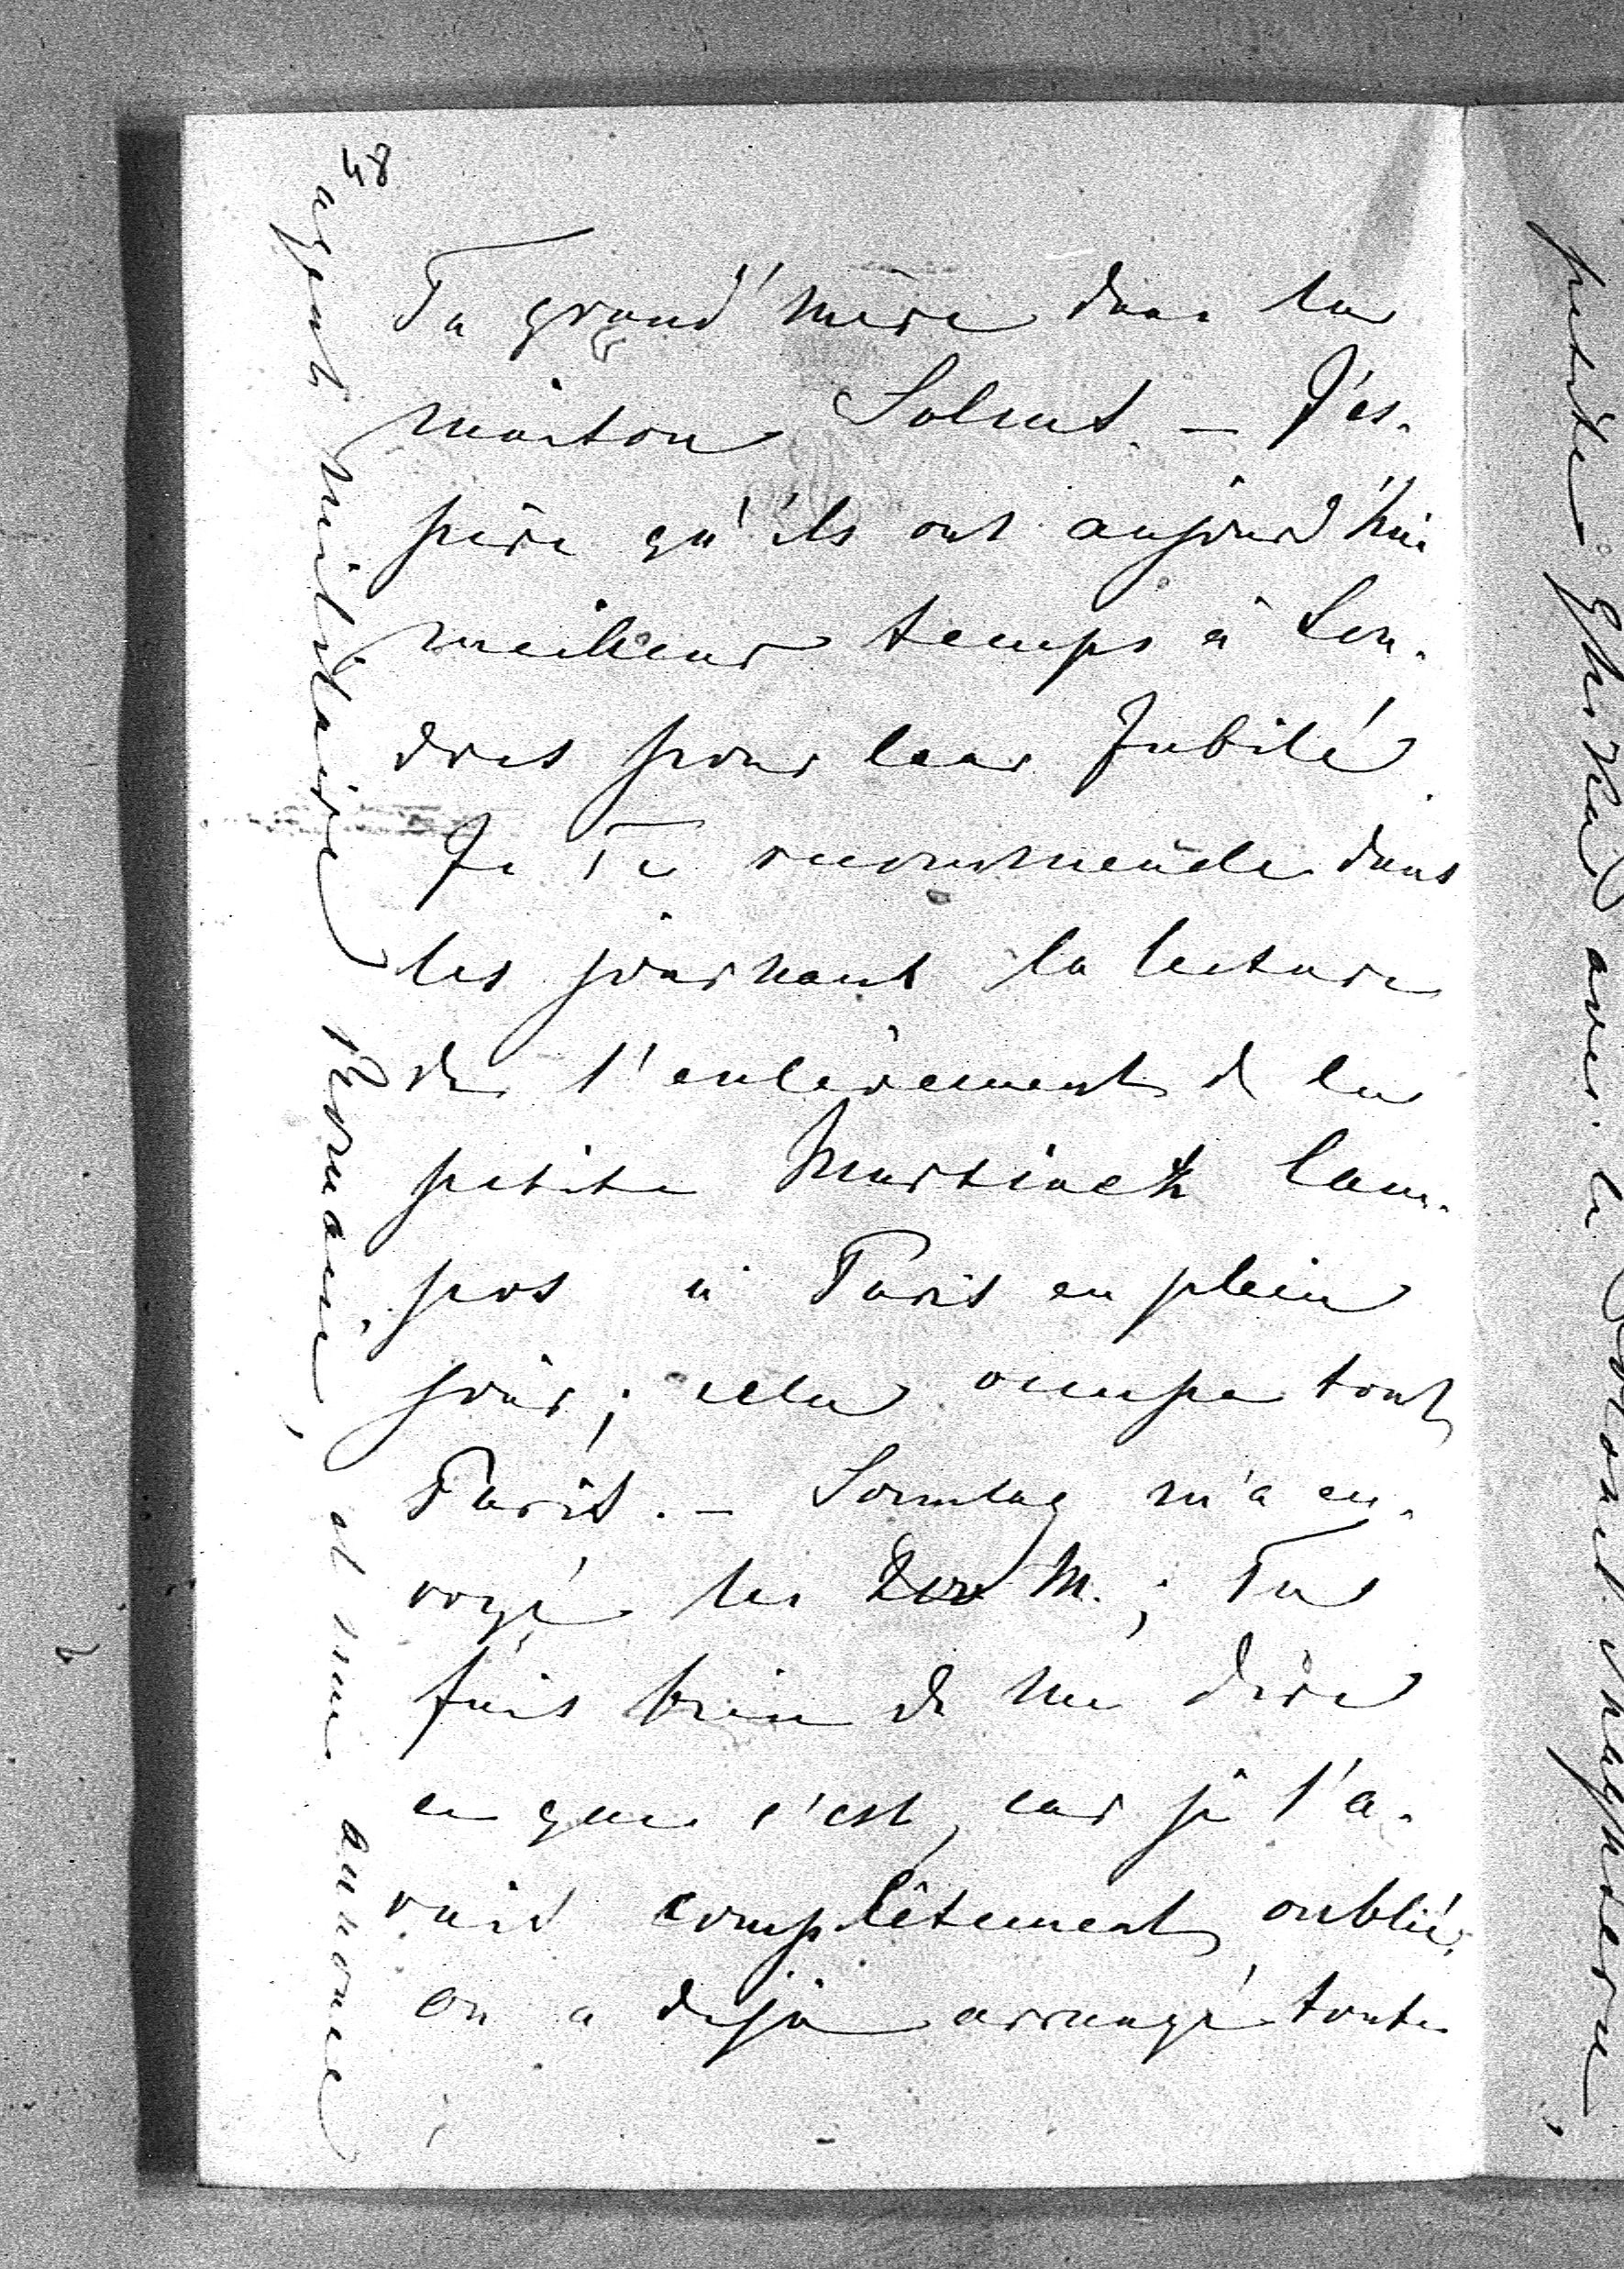 48
Ta grand'mère dans la
maison Solms. — J'es-
père qu'ils ont aujourd'hui
meilleur temps à Lon-
dres pour leur Jubilé.
Je Te recommende dans
les journaux la lecture
de l'enlèvement de la
petite Martinetz Cam-
pos à Paris en plein
jour; cela occupe tout
Paris. — Sonntag m'a en-
voyé les M.; Tu
fais bien de me dire
ce que c'est, car je l'a-
vais complêtement oublié,
on a déjà arrangé toute
agent militaire Roumain, et me annonce
petite avec le